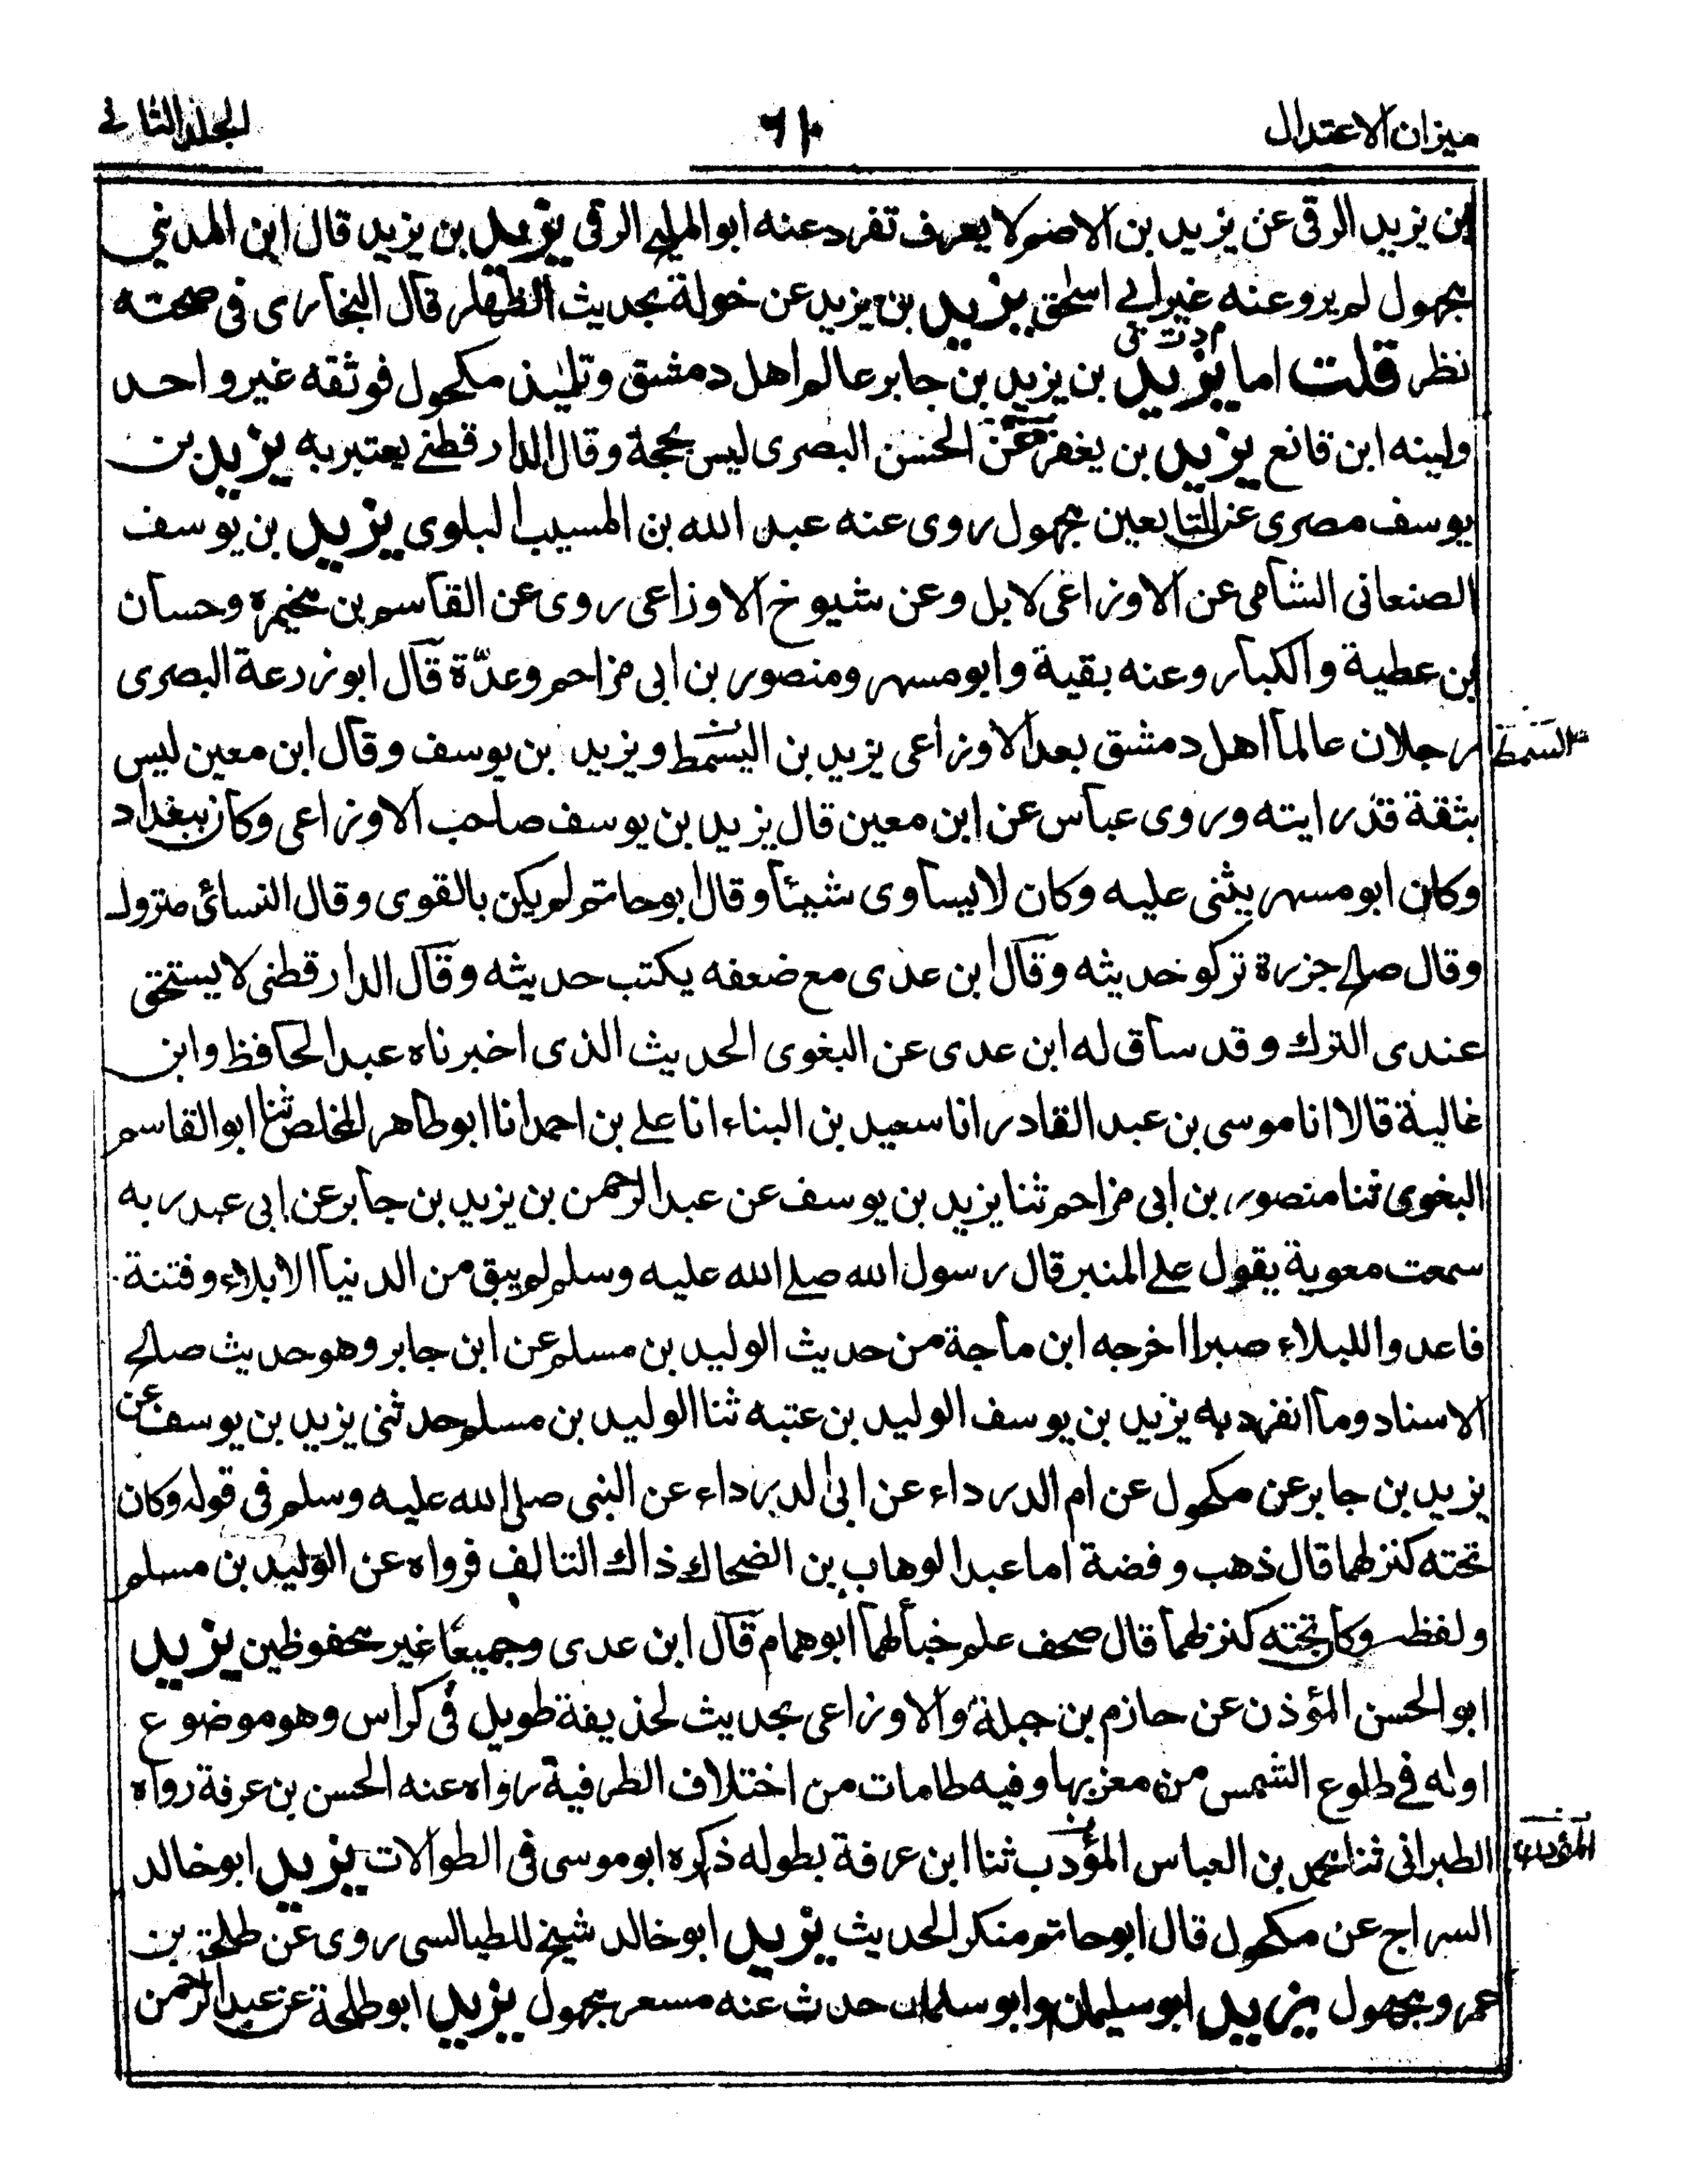 ميزان الاعتدال
الجلد الثانى
بن يزيد الرقى عن يزيد بن الاصم لا يعرف تفرد عنه ابو المليح الرقى يزيد بن يزيد قال ابن المدينى
مجهول لم يرو عنه غير ابى اسحق يزيد بن يزيد عن خولة بحديث الظهار قال البخارى فى صحته
نظر قلت اما يزيد بن يزيد بن جابر عالم اهل دمشق وتلميذ مكحول فوثقه غير واحد
م د ت ق
ولينه ابن قانع يزيد بن يغفر عن الحسن البصرى ليس بحجة وقال الدارقطنى يعتبر به يزيد بن
يوسف مصرى عن التابعين مجهول روى عنه عبد الله بن المسيب البلوى يزيد بن يوسف
الصنعانى الشامى عن الاوزاعى لابل وعن شيوخ الاوزاعى روى عن القاسم بن مخيمرة وحسان
بن عطية والكبار وعنه بقية وابو مسهر ومنصور بن ابى مزاحم وعدّة قال ابو زرعة البصرى
رجلان عالما اهل دمشق بعد الاوزاعى يزيد بن السمط ويزيد بن يوسف وقال ابن معين ليس
السمط
بثقة قد رايته وروى عباس عن ابن معين قال يزيد بن يوسف صاحب الاوزاعى وكان ببغداد
وكان ابو مسهر يثنى عليه وكان لا يساوى شيئا وقال ابو حاتم لم يكن بالقوى وقال النسائى متروك
وقال صالح جزرة تركو حديثه وقال ابن عدى مع ضعفه يكتب حديثه وقال الدارقطنى لا يستحق
عندى الترك وقد ساق له ابن عدى عن البغوى الحديث الذى اخبرناه عبد الحافظ وابن
غالية قالا انا موسى بن عبد القادر انا سعيد بن البناء انا على بن احمد انا ابو طاهر المخلص ثنا ابو القاسم
البغوى ثنا منصور بن ابى مزاحم ثنا يزيد بن يوسف عن عبد الرحمن بن يزيد بن جابر عن ابى عبد ربه
سمعت معوية يقول على المنبر قال رسول الله صلى الله عليه وسلم لم يبق من الدنيا الا بلاء وفتنة
فاعدوا للبلاء صبرا اخرجه ابن ماجة من حديث الوليد بن مسلم عن ابن جابر وهو حديث صالح
الاسناد وما انفرد به يزيد بن يوسف الوليد بن عتبه ثنا الوليد بن مسلم حدثنى يزيد بن يوسف عن
يزيد بن جابر عن مكحول عن ام الدرداء عن ابى الدرداء عن النبى صلى الله عليه وسلم فى قوله وكان
تحته كنز لهما قال ذهب وفضة اما عبد الوهاب بن الضحاك ذاك التالف فرواه عن الوليد بن مسلم
ولفظه وكان تحته كنز لهما قال صحف علم خبأ لهما ابوهما قال ابن عدى وجميعًا غير محفوظين يزيد
ابو الحسن المؤذن عن حازم بن جبلة والاوزاعى بحديث لحذيفة طويل فى كراس وهو موضوع
اوله فى طلوع الشمس من مغربها وفيه طامات من اختلاف الطرفية رواه عنه الحسن بن عرفة رواه
الطبرانى ثنا محمد بن العباس المؤدب ثنا ابن عرفة بطوله ذكره ابو موسى فى الطوالات يزيد ابو خالد
السراج عن مكحول قال ابو حاتم منكر الحديث يزيد ابو خالد شيخ للطيالسى روى عن طلحة بن
عمرو مجهول يزيد ابو سليمان وابو سلمان حدث عنه مسعر مجهول يزيد ابو طلحة عن عبد الرحمن